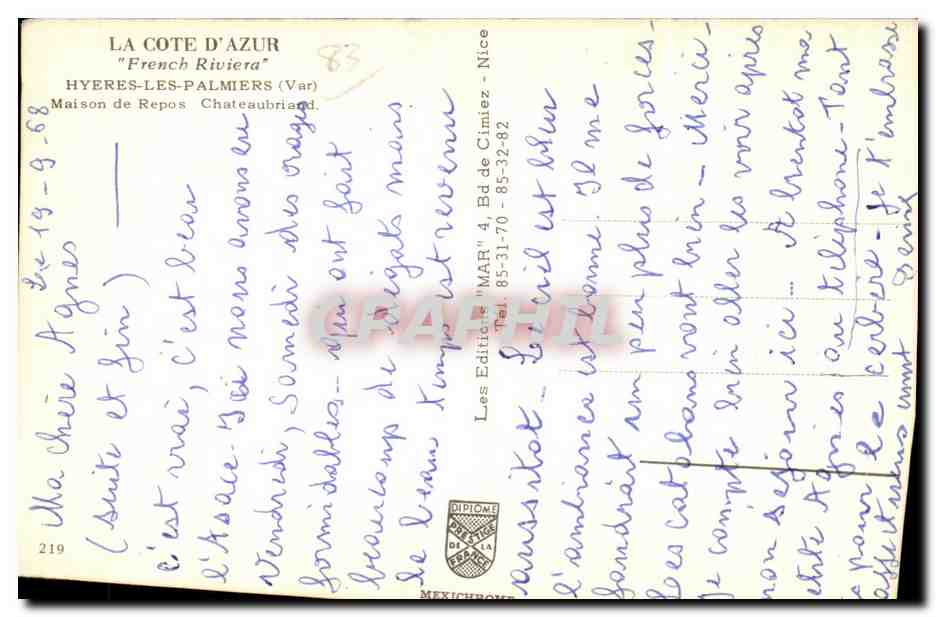 LA COTE D'AZUR
"French Riviera"
HYERES-LES-PALMIERS (Var)
Maison de Repos Chateaubriand.
83
Le 19-9-68
Ma chère Agnès
(suite et fin)
c'est vrai, c'est beau
l'Alsace. Ici nous avons eu
Vendredi, Samedi des orages
formidables - qui ont fait
beaucoup de dégats mais
le beau temps est revenu
aussitot - Le ciel est bleu
l'ambiance est bonne. Il me
faudrait un peu plus de forces -
Les catalans vont bien - Merci -
Je compte bien aller les voir après
mon séjour ici ... A bientot ma
chère Agnès au téléphone - Tant
pour le cerbère - Je t'embrasse
affectueusement
Denise
Les Editions "MAR" 4, Bd de Cimiez - Nice
Tel. 85-31-70 - 85-32-82
219
DIPLOME
PRESTIGE
DE LA
FRANCE
MEXICHROME
CPAPHIL